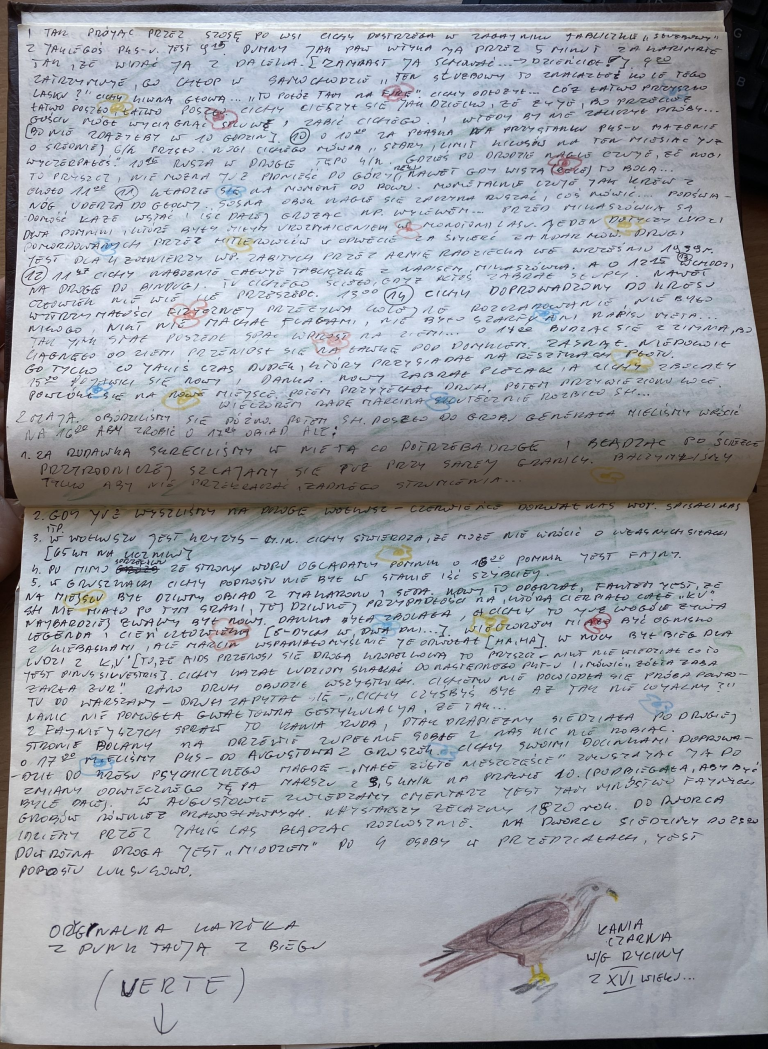 1 TAK PRÓJĄC PRZEZ SZOSĘ PO WSI CICHY DOSTRZEGA W ZAGAJNIKU TABLICZKĘ „SŁUBOWY"
Z JAKIEGOŚ PKS-U. JEST 9 15 DUMNY JAK PAW WTYKA JĄ PRZEZ 5 MINUT ZA KARIMATĘ
TAK, ŻE WIDAĆ JĄ Z DALEKA. [ZAMIAST JĄ SCHOWAĆ... → 9 20
ZATRZYMUJE GO CHŁOP W SAMOCHODZIE „TEN SŁUBOWY TO ZNALAZŁEŚ KOLE TEGO
LASKU?" CICHY KIWNĄ GŁOWĄ... „TO POŁÓŻ TAM NA" CICHY ODŁOŻYŁ... CÓŻ ŁATWO PRZYSZŁO
ŁATWO POSZŁO CICHY CIESZYŁ SIĘ JAK DZIECKO, ŻE ŻYJE, BO PRZECIEŻ
GOŚCIU MÓGŁ WYCIĄGNĄĆ I ZABIĆ CICHEGO I WTEDY BY NIE ZALICZYŁ PRÓBY...
[BO NIE ZDĄŻYŁBY W 10 GODZIN]. (10) O 10 20 ZA PŁASKĄ DWA PRZYSTANKI PKS-U
O ŚREDNIEJ 6/H PRZESZŁO. NOGI CICHEGO MÓWIĄ „STARY, LIMIT NA TEN MIESIĄC JUŻ
WYCZERPAŁEŚ" RUSZA W DROGĘ TĘPO 4/H. GDZIEŚ PO DRODZE NAGLE CZUJE, ŻE NOGI
TO PRYSZCZ, NIE MOŻNA JUŻ PODNIEŚĆ DO GÓRY, NAWET GDY WISZĄ TO BOLĄ...
OKOŁO 11 00 (11) KŁADZIE SIĘ NA MOMENT DO ROWU. MOMENTALNIE CZUJE JAK KREW Z
NÓG UDERZA DO GŁOWY. SOSNA OBOK NAGLE SIĘ ZACZYNA RUSZAĆ, I COŚ MÓWIĆ... PODŚWIA-
DOMOŚĆ KAŻE WSTAĆ I IŚĆ DALEJ GROŻĄC NP. WYLEWEM... PRZED MIKASZÓWKĄ SĄ
DWA POMNIKI, KTÓRE BYŁY MIŁYM UROZMAICENIEM W MONOTONII LASU. JEDEN DOTYCZY LUDZI
POMORDOWANYCH PRZEZ HITLEROWCÓW W ODWECIE ZA ŚMIERĆ ŻANDARMÓW, DRUGI
JEST DLA ŻOŁNIERZY WP. ZABITYCH PRZEZ ARMIĘ RADZIECKĄ WE WRZEŚNIU 1939R.
(12) 11 45 CICHY NABOŻNIE CAŁUJE TABLICZKĘ Z NAPISEM MIKASZÓWKA. A O 12 15 (13) WCHODZI
NA DROGĘ DO BINDUGI. TU CICHEGO ŚCIĘŁO, GDY KTOŚ ZABRAŁ SŁUPKI. NAWET
CZŁOWIEK NIE WIE ILE PRZESZEDŁ. 13 00 (14) CICHY DOPROWADZONY DO KRESU
WYTRZYMAŁOŚCI FIZYCZNEJ PRZEŻYWA KOLEJNE ROZCZAROWANIE NIE BYŁO
NIKOGO, NIKT NIE MACHAŁ FLAGAMI, NIE BYŁO SZARF ANI NAPISU META...
TAK JAK STAŁ POSZEDŁ SPAĆ WPROST NA ZIEMI... O 14 00 BUDZĄC SIĘ Z ZIMNA, BO
CIĄGNĘŁO OD ZIEMI PRZENIÓSŁ SIĘ NA ŁAWKĘ POD DOMKIEM. ZASNĄŁ. NIEPOKOIŁ
GO TYLKO CO JAKIŚ CZAS DUDEK, KTÓRY PRZYSIADAŁ NA RESZTKACH PŁOTU.
15 30 POJAWILI SIĘ NOWY I DANKA. NOWY ZABRAŁ PLECAK A CICHY ZBOLAŁY
POWLÓKŁ SIĘ NA NOWE MIEJSCE. POTEM PRZYJECHAŁ DRUH, POTEM PRZYWIEZIONO KOCE.
WIECZOREM RADĘ MARCINA SKUTECZNIE ROZBIŁO SH...
2 MAJA. OBUDZILIŚMY SIĘ PÓŹNO. POTEM SH. POSZŁO DO GROBU GENERAŁA MIELIŚMY WRÓCIĆ
NA 16 00 ABY ZROBIĆ O 17 00 OBIAD ALE:
1. ZA RUDAWKĄ SKRĘCILIŚMY W NIE TĄ CO POTRZEBA DROGĘ I BŁĄDZĄC PO ŚCIEŻCE
PRZYRODNICZEJ SZLAJAMY SIĘ TUŻ PRZY SAMEJ GRANICY. BACZYMYLIŚMY
TYLKO ABY NIE PRZEKRACZAĆ ŻADNEGO STRUMIENIA...
2. GDY JUŻ WYSZLIŚMY NA DROGĘ WOŁKUSZ - CZERWIENIE DORWAŁ NAS WOP. SPISALI NAS
ITP.
3. W WOŁKUSZU JEST KRYZYS - M.IN. CICHY STWIERDZA, ŻE MOŻE NIE WRÓCIĆ O WŁASNYCH SIŁACH
[65 KM NA LICZNIKU]
4. PO MIMO SPRZECIWÓW ZE STRONY WOPU OGLĄDAMY POMNIK O 16 20 POMNIK JEST FAJNY.
5. W GRUSZKACH CICHY POPROSTU NIE BYŁ W STANIE IŚĆ SZYBCIEJ.
NA MIEJSCU BYŁ DZIWNY OBIAD Z MAKARONU I SERA. NOWY TO ODGRZAŁ, FAKTEM JEST, ŻE
SH NIE MIAŁO PO TYM SRAKI, TEJ DZIWNEJ PRZYPADŁOŚCI NA KTÓRĄ CIERPIAŁO CAŁE „KU"
NAJBARDZIEJ ŻWAWY BYŁ NOWY. DANKA BYŁA ZBOLAŁA A CICHY TO JUŻ WOGÓLE ŻYWA
LEGENDA I CIEŃ CZŁOWIEKA [8-DYCH W DWA DNI...]. WIECZOREM MIAŁO BYĆ OGNISKO
Z KIEŁBASKAMI, ALE MARCIN WSPANIAŁOMYŚLNIE JE ODWOŁAŁ [HA, HA]. W NOCY BYŁ BIEG DLA
LUDZI Z „K,V" [TO, ŻE AIDS PRZENOSI SIĘ DROGĄ KROPELKOWĄ TO PRYSZCZ - NIKT NIE WIEDZIAŁ CO TO
JEST PINUS SILVESTRIS]. CICHY KAZAŁ LUDZIOM SKAKAĆ DO NASTĘPNEGO PKT-U I MÓWIĆ „ŻÓŁTA ŻABA
ŻARŁA ŻUR" RANO DRUH OBUDZIŁ WSZYSTKICH. CICHEMU NIE POWIODŁA SIĘ PRÓBA POWRO-
TU DO WARSZAWY - DRUH ZAPYTAŁ SIĘ - „CICHY CZYŻBYŚ BYŁ AŻ TAK NIE LOJALNY?"
NA NIC NIE POMOGŁA GWAŁTOWNA GESTYKULACJA, ŻE TAK...
Z FAJNIEJSZYCH SPRAW TO KANIA RUDA, PTAK DRAPIEŻNY SIEDZIAŁA PO DRUGIEJ
STRONIE POLANY NA DRZEWIE ZUPEŁNIE SOBIE Z NAS NIC NIE ROBIĄC.
O 17 00 MIELIŚMY PKS-DO AUGUSTOWA Z GRUSZEK. CICHY SWOIMI DOCINKAMI DOPROWA-
DZIŁ DO KRESU PSYCHICZNEGO MAGDĘ - „MAŁE ŻÓŁTE NIESZCZĘŚCIE" ZMUSZAJĄC JĄ DO
ZMIANY ODWIECZNEGO TĘPA MARSZU Z 3,5 KM/H NA PRAWIE 10. (PODBIEGAŁA, ABY BYĆ
BYLE DALEJ. W AUGUSTOWIE ZWIEDZAMY CMENTARZ JEST TAM MNÓSTWO FAJNYCH
GROBÓW RÓWNIEŻ PRAWOSŁAWNYCH. NAJSTARSZY ŻELAZNY 1820 ROK. DO DWORCA
IDZIEMY PRZEZ JAKIŚ LAS BŁĄDZĄC ROZKOSZNIE. NA DWORCU SIEDZIMY DO 23 20
POWROTNA DROGA JEST „MIODZIEM" PO 4 OSOBY W PRZEDZIAŁACH, JEST
POPROSTU LUKSUSOWO.
ORYGINALNA KARTKA
Z PUNKTACJĄ Z BIEGU
(VERTE)
KANIA
CZARNA
W/G RYCINY
Z XVI WIEKU...